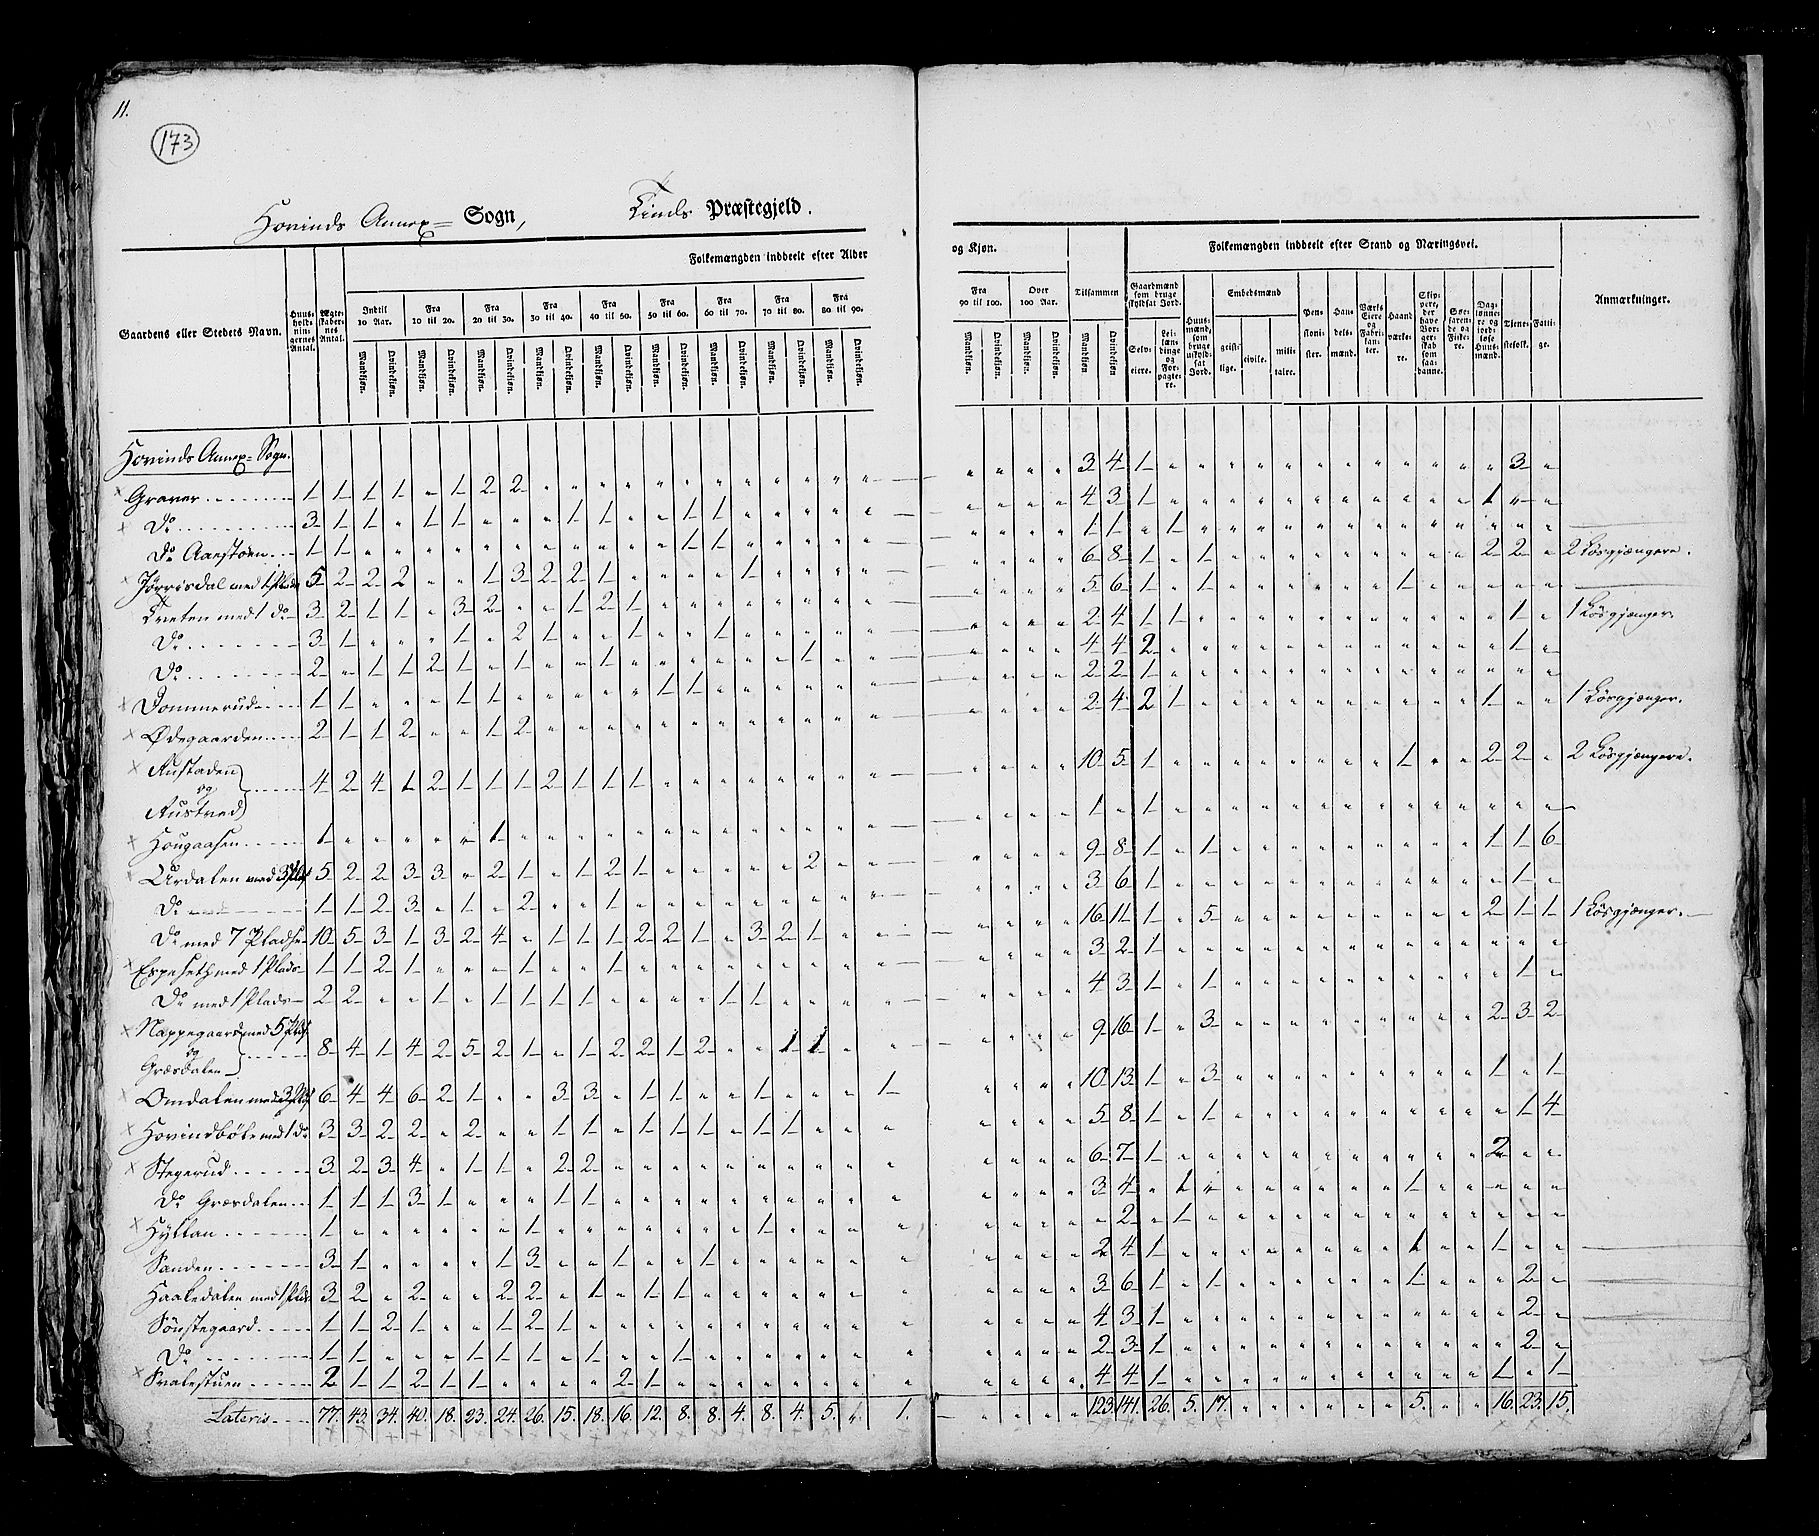 11.
173
Hovinds Annex= Sogn, Tinds Præstegjeld.
Gaardens eller Stedets Navn. Huusholdningernes Antal. Ægteskabernes Antal. Folkemængden inddeelt efter Alder og Kjøn. Tilsammen Folkemængden inddeelt efter Stand og Næringsvei. Anmærkninger.
Indtil 10 Aar. Fra 10 til 20. Fra 20 til 30. Fra 30 til 40. Fra 40 til 50. Fra 50 til 60. Fra 60 til 70. Fra 70 til 80. Fra 80 til 90. Fra 90 til 100. Over 100 Aar.
Mandkjøn. Qvindekjøn.
Gaardmænd som bruge skyldsat Jord. Selveiere. Leilændinge og Forpagtere. Huusmænd, som bruge uskyldsat Jord. Embedsmænd geistlige. civile. militaire. Pensionister. Handelsmænd. Værks Eiere og Fabrikanter. Haandværkere. Skippere, der have Borgerskab som saadanne. Søefarende og Fiskere. Daglønnere og jordløse Huusmænd. Tjenestefolk. Fattige.
Hovinds Annex= Sogn.
Graver 1 1 1 1 " 1 2 2 3 4 1 3
Do 3 1 1 " 1 1 " " " 1 1 " " 1 1 4 3 1 1
Do Aaestøen 1 1 1 1 1 1 " 1
Jørrisdal med 1 Plads 5 2 2 2 " " 1 3 2 2 1 " " " " 1 6 8 1 " 1 2 2 2 Løsgjængere.
Tveten med 1 do 3 2 1 1 " 3 2 " " 1 2 1 5 6 1 " 1 1
Do 3 1 " " " 1 " 2 1 " " 1 " " 1 2 4 1 1 1 1 Løsgjænger.
Do 2 " 1 1 2 1 " 1 " " 1 1 4 4 2 1
Dommerud 1 1 " " " 1 1 1 1 2 2 1
Ødegaarden 2 1 1 2 " " 1 2 2 4 2 1 1 1 Løsgjænger.
Rustaden og Rustved 4 2 4 1 2 1 1 1 2 1 1 1 10 5 1 1 2 2 2 Løsgjængere.
Hougaasen 1 1 1 " 1
Urdalen med 3 Pladse 5 2 2 3 3 " 2 1 " 1 2 1 2 9 8 1 " 1 1 1 6
Do 1 1 2 3 " 1 " 2 " " 1 3 6 1 1
Do med 7 Pladse 10 5 3 1 3 2 4 " 1 1 1 2 2 1 " 3 2 1 16 11 1 " 5 2 1 1 1 Løsgjænger.
Espeseth med 1 Plads 1 1 2 1 " " " 1 " " 1 3 2 1
Do med 1 Plads 2 2 " " 1 " 1 1 1 1 1 1 4 3 1 " 1 1
Nappegaard med 5 Pladse og Græsdalen 8 4 1 4 2 5 2 1 " 1 2 2 1 2 " " 1 1 9 16 1 " 3 2 3 2
Omdalen med 3 Pladse 6 4 4 6 2 1 " " 3 3 " 1 1 " " 1 1 10 13 1 " 3 1 " 1
Hovindbøle med 1 do 3 3 2 2 " 2 " " 1 1 " 1 1 1 " 1 1 5 8 1 " 1 1 4
Stegerud 3 2 3 4 " 1 1 " 2 2 6 7 1 2
Do Græsdalen 1 1 1 3 1 " " " 1 1 3 4 " 1 1
Hyllan 1 1 1 " 2 " 1
Sanden 3 1 " " " " 1 3 " " 1 " " 1 2 4 1 1 1
Haakedalen med 1 Plads 3 2 " 2 " " 2 2 " 1 " 1 1 3 6 1 " 1 1 2
Sønstegaard 1 1 2 1 " " 1 2 1 4 3 1 2
Do 1 1 " " " 1 1 1 " 1 " " 1 2 3 1 2
Svalestuen 2 1 1 2 1 1 " " " " 2 1 4 4 1 1 " 1
Lateris 77. 43. 34. 40. 18. 23. 24. 26. 15. 18. 16. 12. 8. 8. 4. 8. 4. 5. " 1. 123 141. 26. 5. 17. 5. 16. 23. 15.